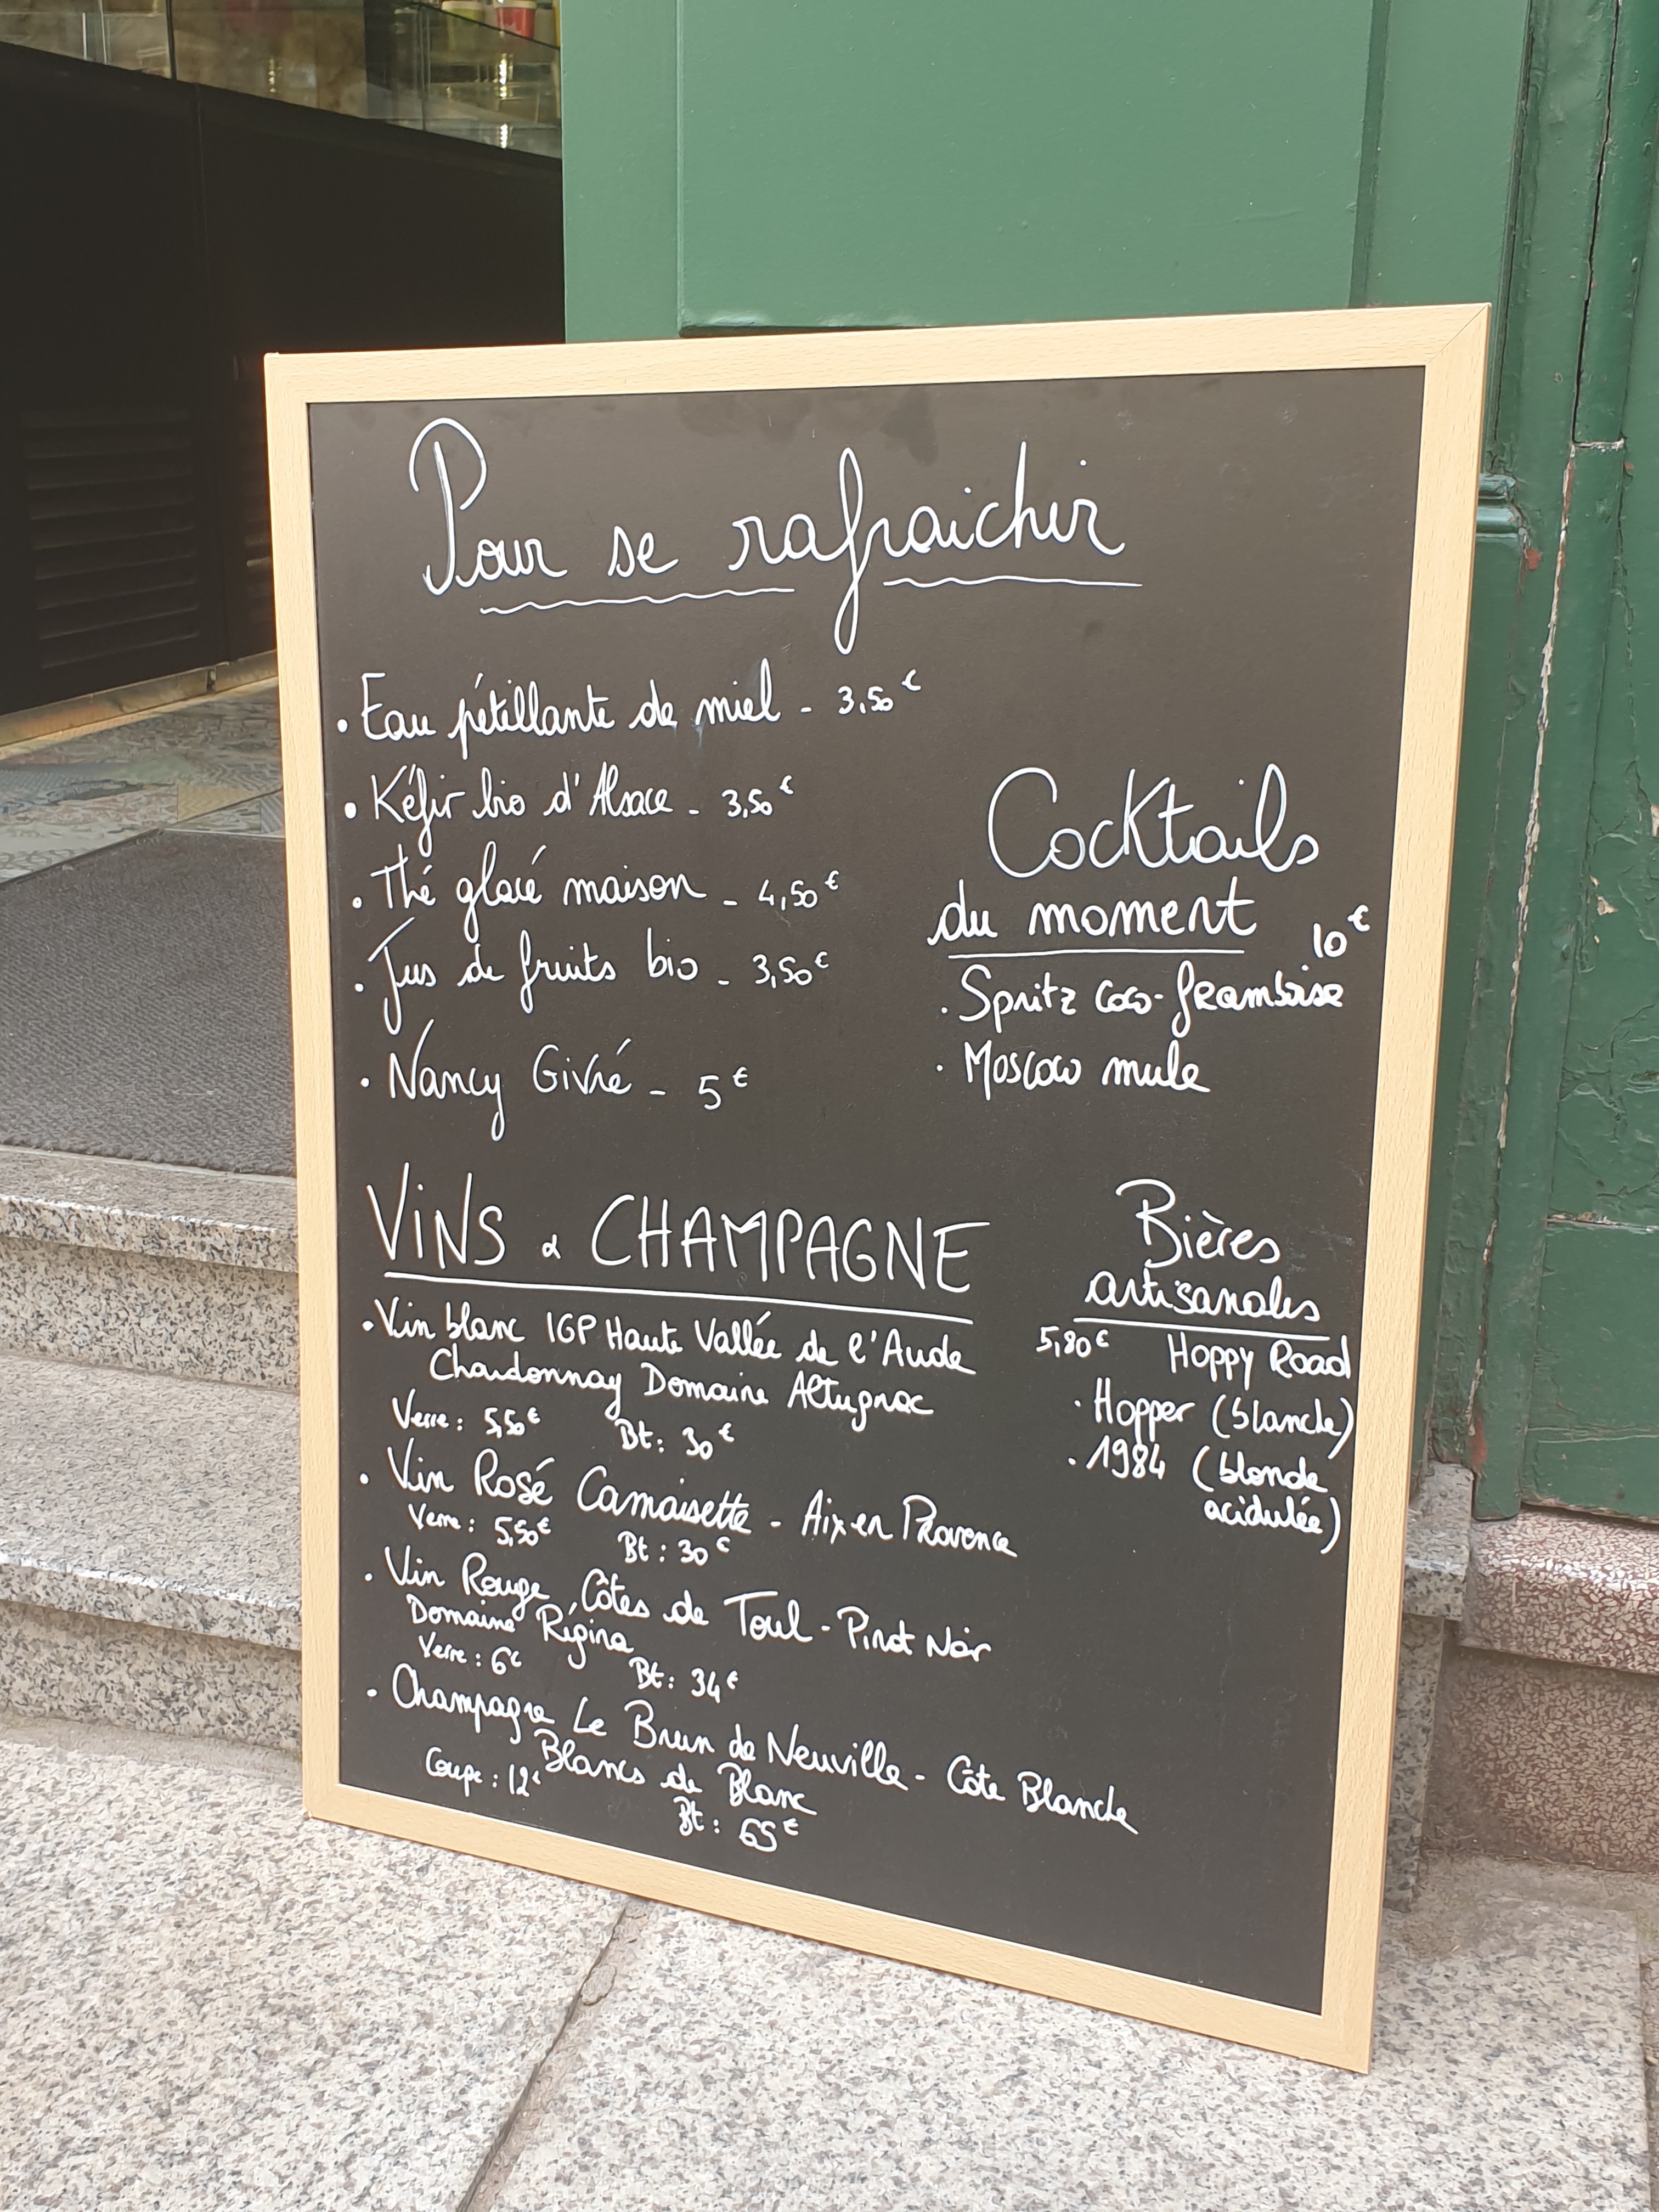 Pour se rafraichir
• Eau pétillante de miel - 3,50€
• Kéfir bio d'Alsace - 3,50€
• Thé glacé maison - 4,50€
• Jus de fruits bio - 3,50€
• Nancy Givré - 5€
Cocktails
du moment 10€
• Spritz coco-framboise
• Moscow mule
VINS & CHAMPAGNE
• Vin blanc IGP Haute Vallée de l'Aude
Chardonnay Domaine Altugnac
Verre : 5,50€ Bt : 30€
• Vin Rosé Camaisette - Aix en Provence
Verre : 5,50€ Bt : 30€
• Vin Rouge Côtes de Toul - Pinot Noir
Domaine Régina
Verre : 6€ Bt : 34€
• Champagne Le Brun de Neuville - Côte Blanche
Blancs de Blanc
Coupe : 12€ Bt : 65€
Bières
artisanales
5,80€ Hoppy Road
• Hopper (blanche)
• 1984 (blonde
acidulée)